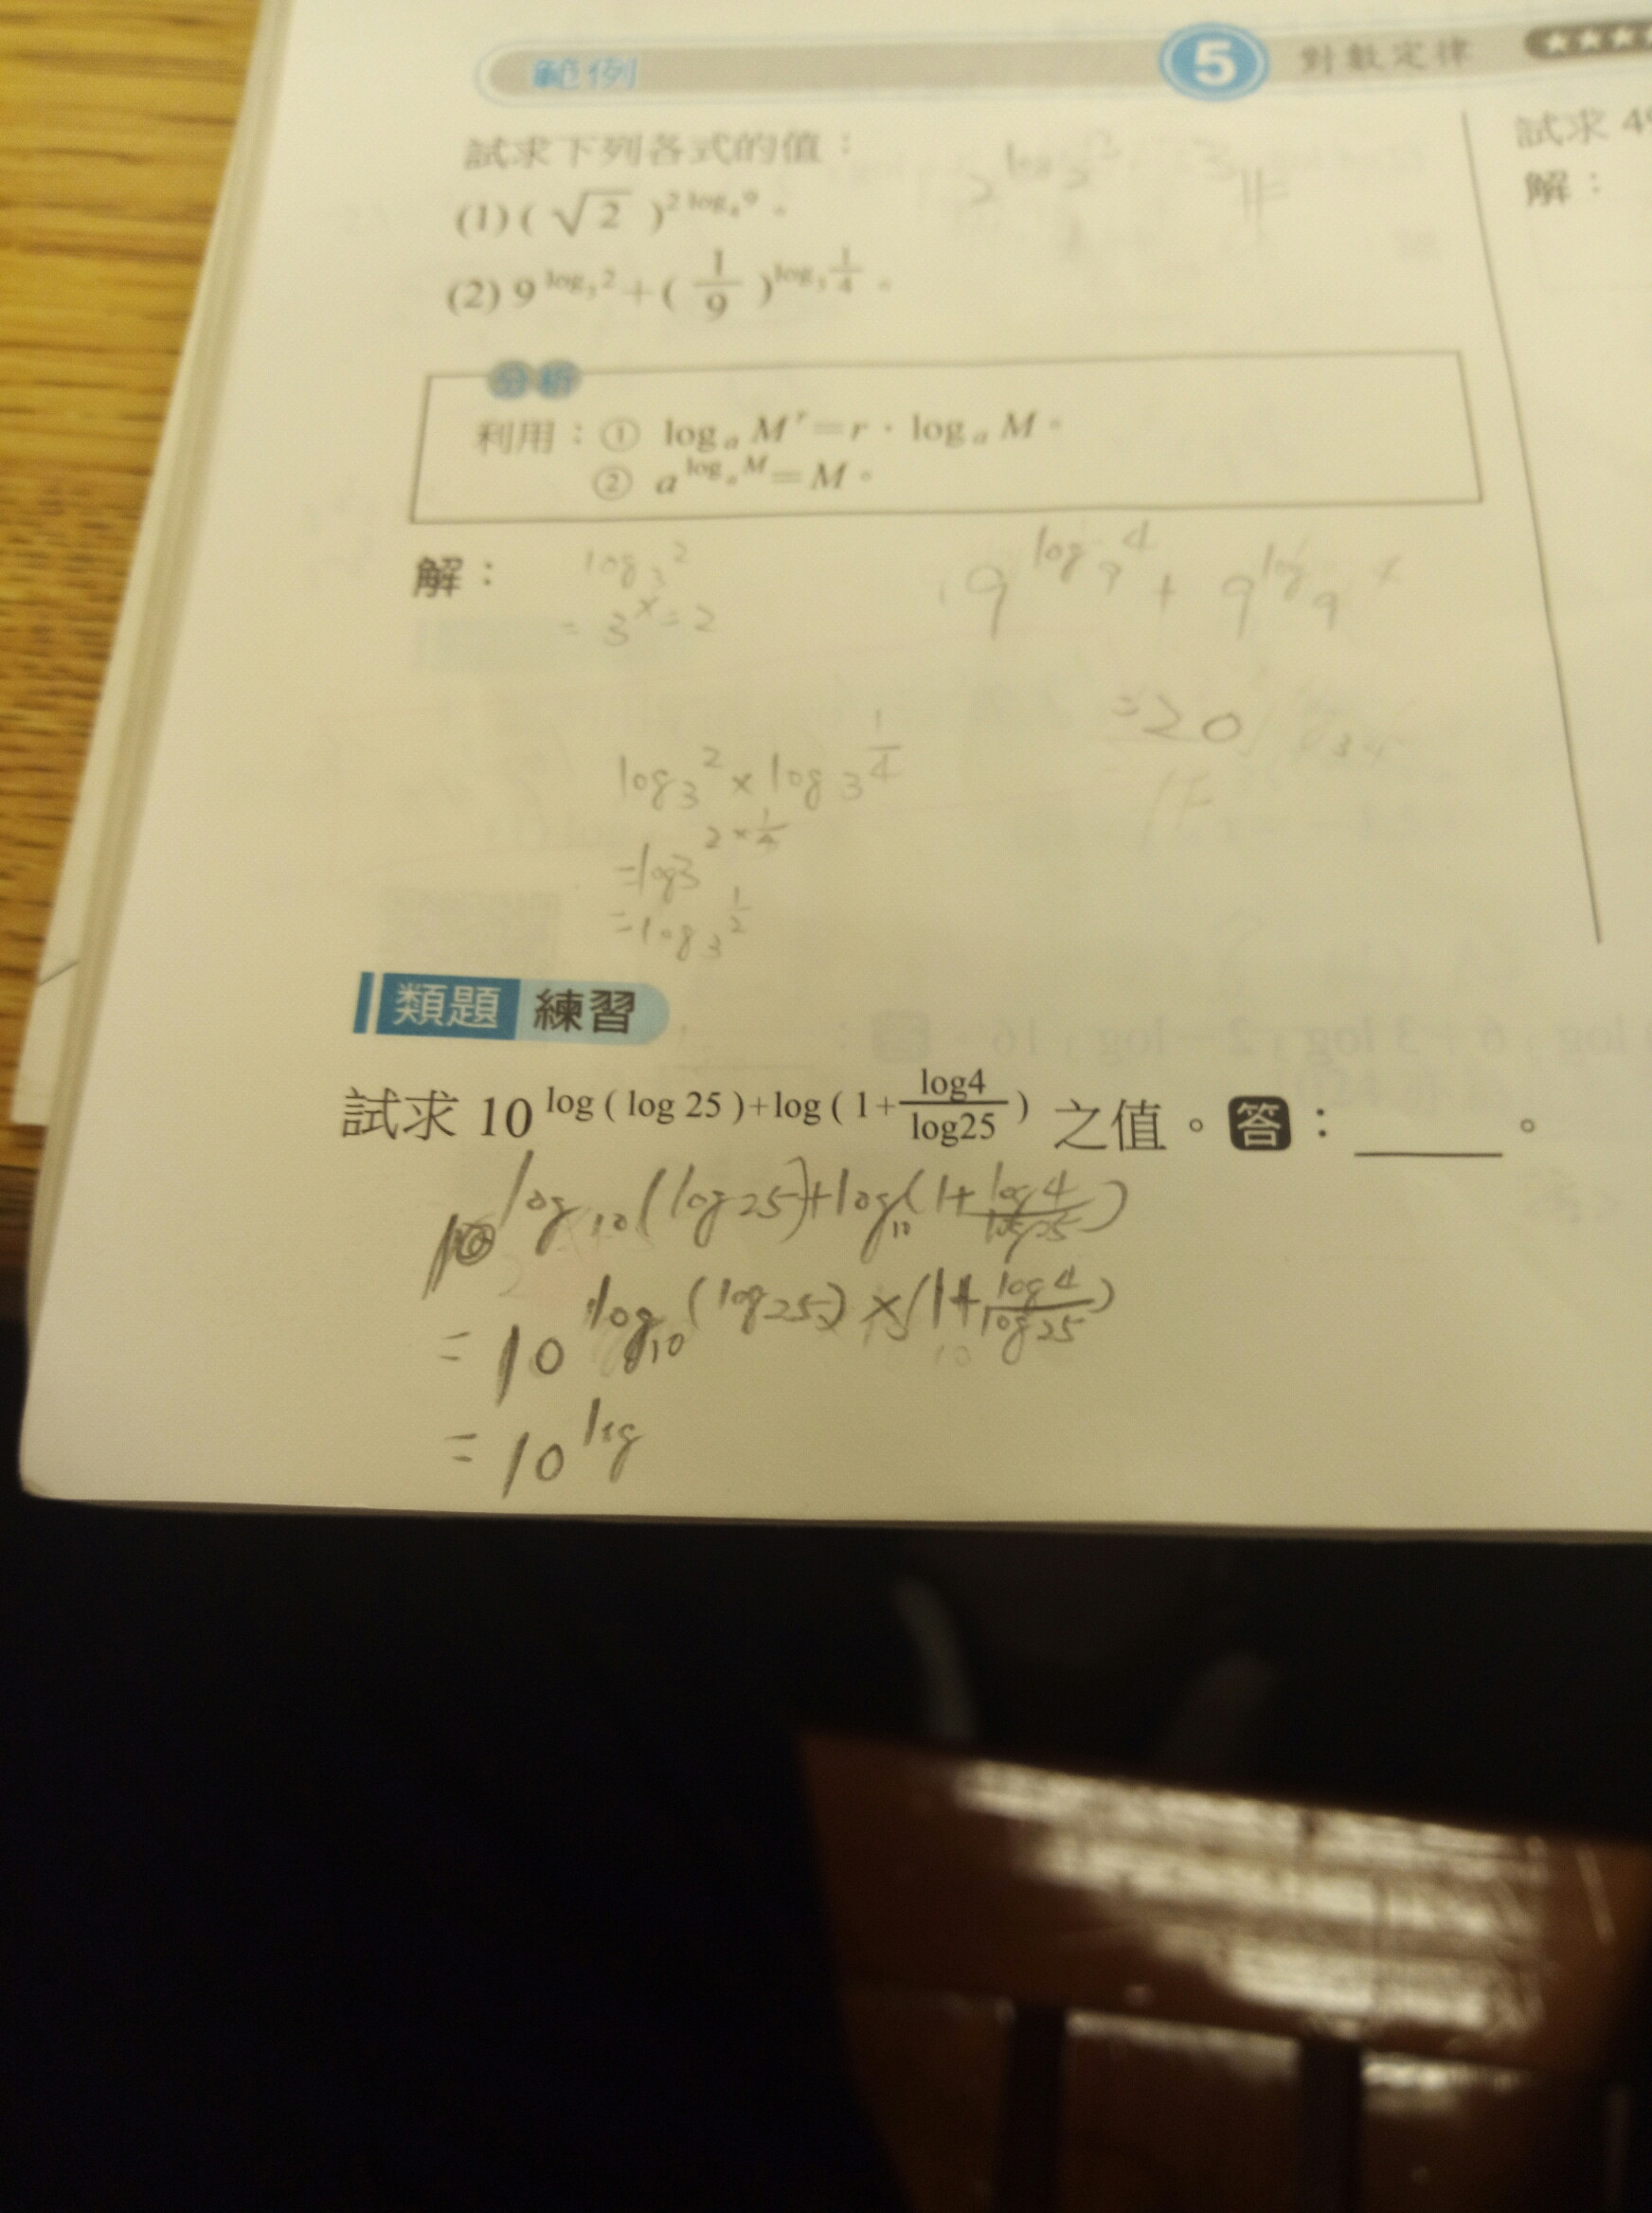 範例 5 對數定律 ★★★★
試求下列各式的值：
(1) ( √2 )^{2 log₄ 9}。
(2) 9^{log₃ 2} + ( 1/9 )^{log₃ 1/4}。
分析
利用：① log_a M^r = r · log_a M。
② a^{log_a M} = M。
解：
log₃ 2
= 3^x = 2
9^{log₉ 4} + 9^{log₉
= 20
log₃ 2 × log₃ 1/4
= log3 2×1/4
= log₃ 1/2
試求 4
解：
類題 練習
試求 10^{log ( log 25 )+log ( 1+ log4/log25 )} 之值。答：______。
10^{log₁₀ (log 25)+log₁₀(1+ log 4/log 25)}
= 10^{log₁₀ (log 25) × (1+ log 4/log 25)}
= 10^{log}